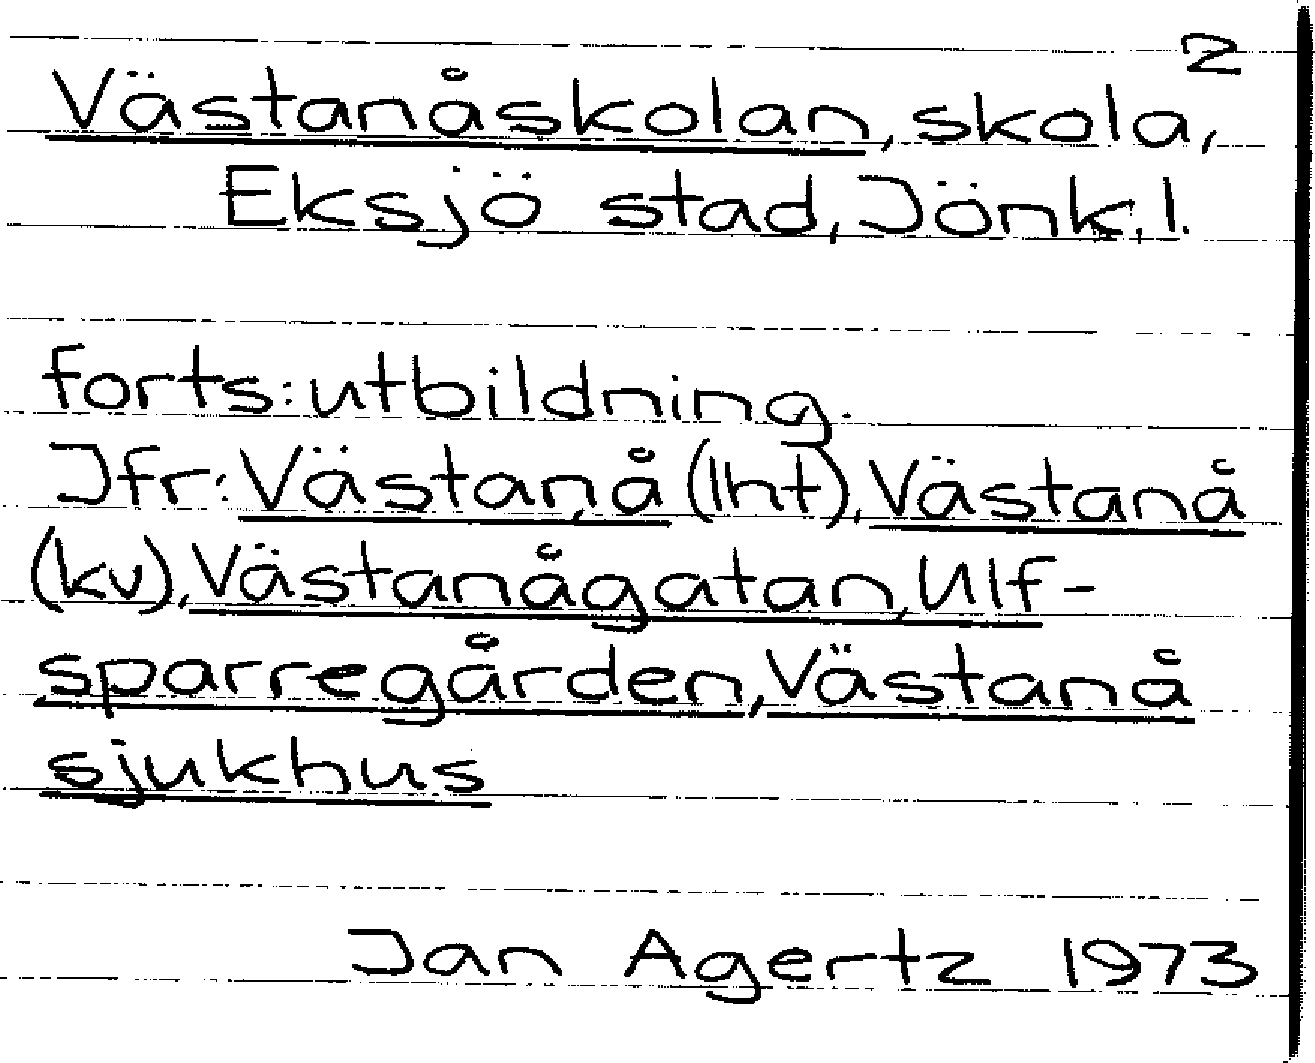 2
Västanåskolan, skola,
Eksjö stad, Jönk. l.
forts: utbildning.
Jfr: Västanå (lht), Västanå
(kv), Västanågatan, Ulf-
sparregården, Västanå
sjukhus
Jan Agertz 1973